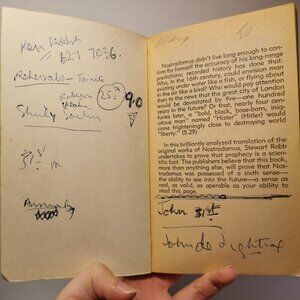 627 7036.
Rehersals - Tonite
25
90
Nostradamus didn't live long enough to con-
firm for himself the accuracy of his long-range
predictions; recorded history has done that.
Who, in the 16th century, could envision man
existing under water like a fish, or flying about
in the air like a bird? Who would pay attention
then to the news that the great city of London
would be devastated by fire—one hundred
years in the future? Or that, nearly four cen-
turies later, a "bold, black, base-born, iniq-
uitous man" named "Hister" (Hitler) would
come frighteningly close to destroying world
liberty." (5.29)
In this brilliantly analyzed translation of the
original works of Nostradamus, Stewart Robb
undertakes to prove that prophecy is a scien-
tific fact. The publishers believe that this book,
more than anything else, will prove that Nos-
tradamus was possessed of a sixth sense—
the ability to see into the future—a sense as
real, as valid, as operable as your ability to
read this page.
John 31st
John de